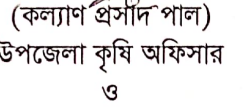 (কল্যাণ প্রসাদ পাল)
উপজেলা কৃষি অফিসার
ও